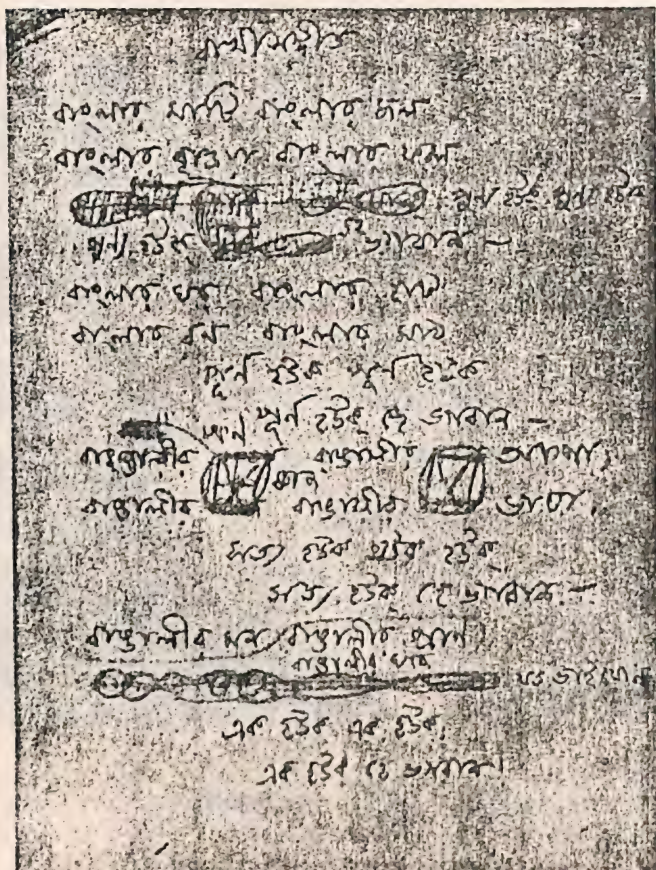 রাখীসঙ্গীত
বাংলার মাটি বাংলার জল
বাংলার বায়ু বাংলার ফল
পুণ্য হউক পুণ্য হউক
পুণ্য হউক হে ভগবান —
বাংলার ঘর বাংলার হাট
বাংলার বন বাংলার মাঠ
পূর্ণ হউক পূর্ণ হউক
পূর্ণ হউক হে ভগবান —
বাঙালীর পণ বাঙালীর আশা,
বাঙালীর কাজ বাঙালীর ভাষা,
সত্য হউক হউক হউক
সত্য হউক হে ভগবান —
বাঙালীর মন বাঙালীর প্রাণ
বাঙালীর ঘরে যত ভাইবোন
এক হউক এক হউক,
এক হউক হে ভগবান।